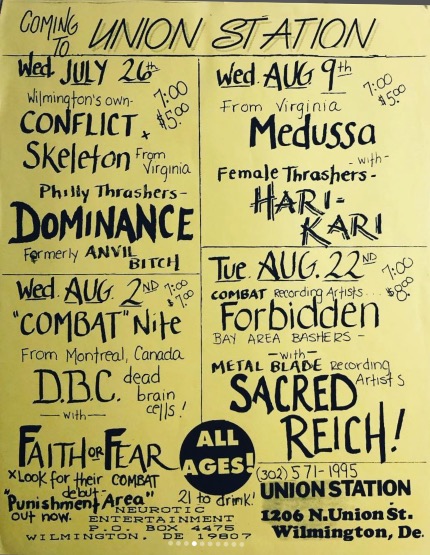 COMING TO UNION STATION
Wed. JULY 26th
7:00
$5.00
Wilmington's own-
CONFLICT +
Skeleton From Virginia
Philly Thrashers-
DOMINANCE
Formerly ANVIL
BITCH
Wed. AUG. 2ND 7:00
$7.00
"COMBAT" Nite
From Montreal, Canada
D.B.C. dead
brain
cells!
- with -
FAITH OR FEAR
*Look for their COMBAT
debut-
"Punishment Area"
out now.
Wed. AUG 9th
7:00
$5.00
From Virginia
Medussa
- with -
Female Thrashers-
HARI-
KARI
Tue. AUG. 22ND
7:00
$8.00
COMBAT Recording Artists...
Forbidden
BAY AREA BASHERS -
- with -
METAL BLADE Recording
Artists
SACRED
REICH!
ALL
AGES!
21 to drink!
NEUROTIC
ENTERTAINMENT
P.O. BOX 4475
WILMINGTON, DE 19807
(302) 571-1995
UNION STATION
1206 N. Union St.
Wilmington, De.